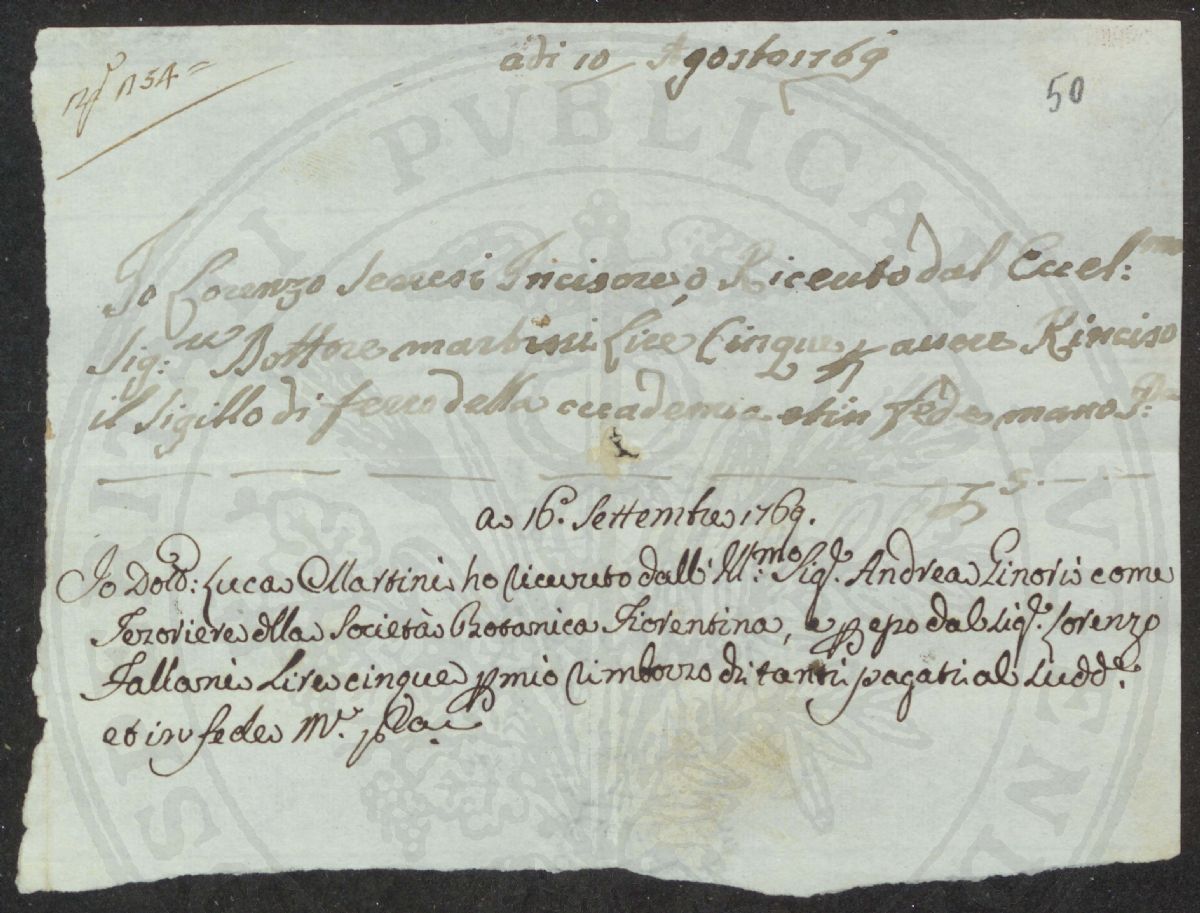 adi 10 Agosto 1769
N° 154=
50
Io Lorenzo Incisore, ò Riceuto dal Eccel:mo
Sig:re Dottore martini Lire Cinque p auere Rinciso
il Sigillo di ferro della accademia et in fede mano P:Pa
5.
a 16. Settembre 1769.
Io Dott: Luca Martini ho riceuuto dall' Ill:mo Sig.e Andrea Ginori come
Tezoriere della Società Botanica Fiorentina, e p esso dal Sig.e Lorenzo
Lire cinque p mio rimborzo di tanti pagati al Sudd.o
et in fede M.o pPa